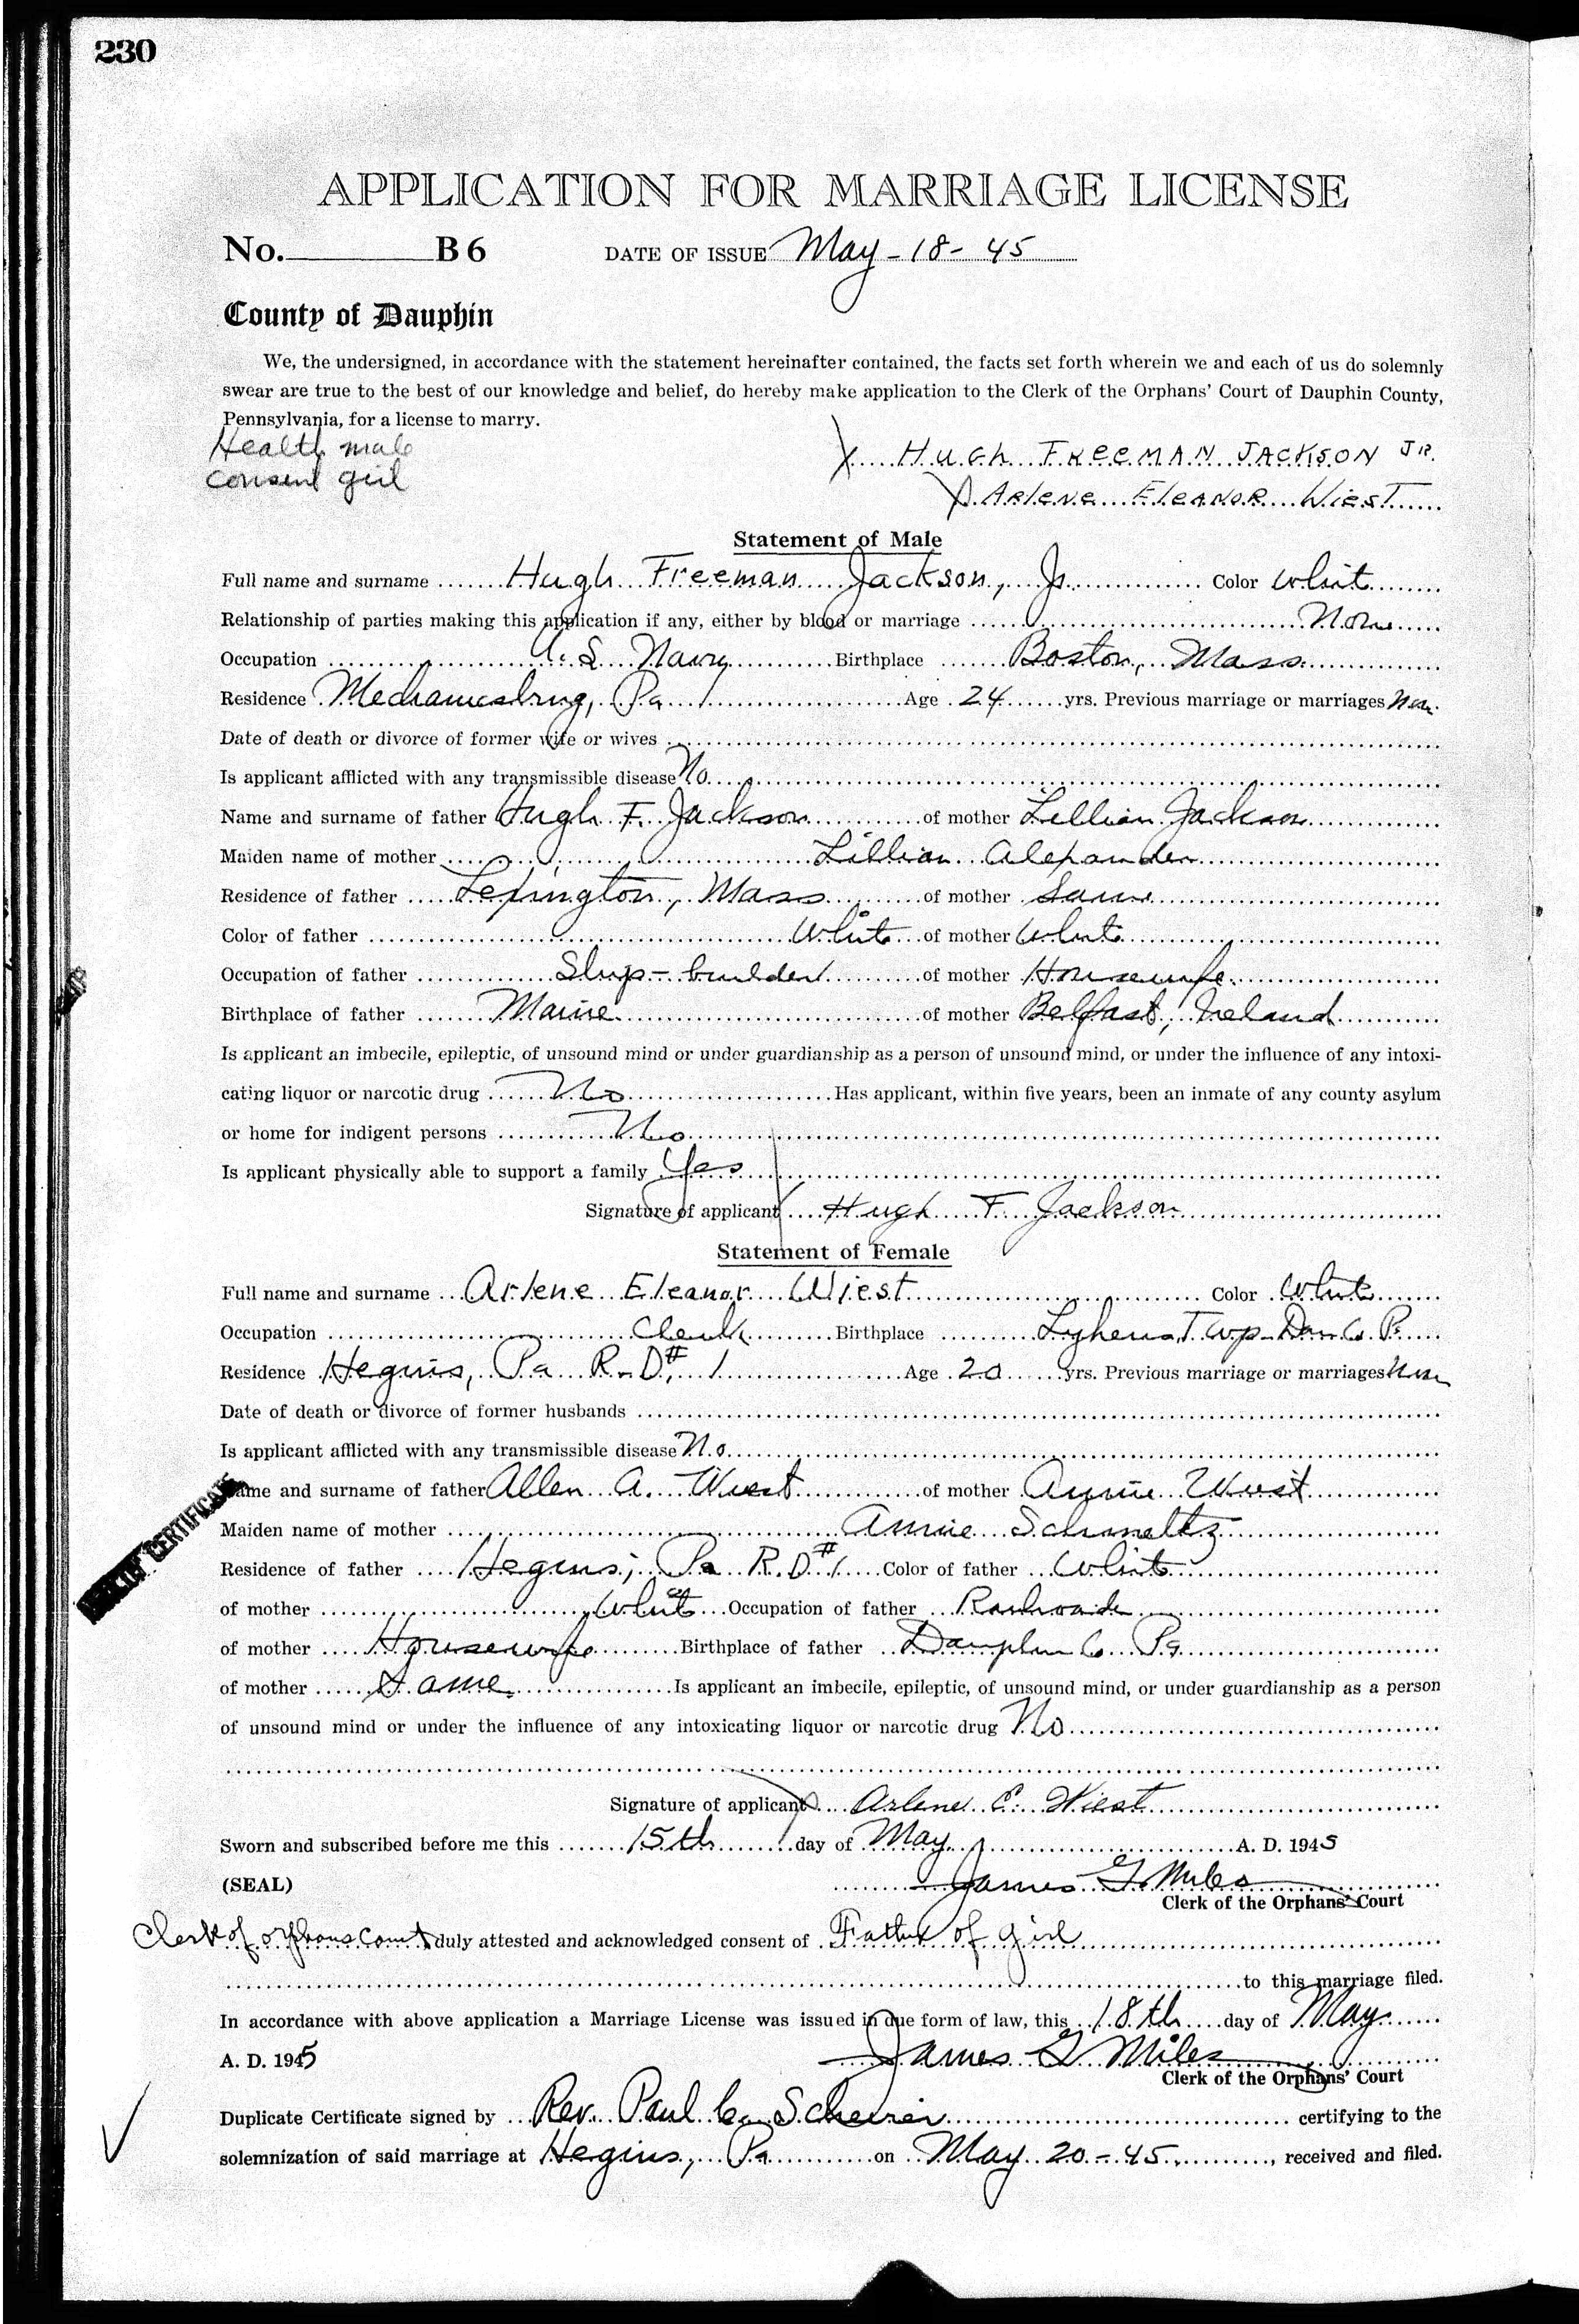 230
APPLICATION FOR MARRIAGE LICENSE
No. B6 DATE OF ISSUE May - 18 - 45
County of Dauphin
We, the undersigned, in accordance with the statement hereinafter contained, the facts set forth wherein we and each of us do solemnly
swear are true to the best of our knowledge and belief, do hereby make application to the Clerk of the Orphans' Court of Dauphin County,
Pennsylvania, for a license to marry.
Health male
consent girl
X HUGH FREEMAN JACKSON JR.
X Arlene Eleanor Wiest
Statement of Male
Full name and surname Hugh Freeman Jackson, Jr. Color White
Relationship of parties making this application if any, either by blood or marriage None
Occupation U.S. Navy Birthplace Boston, Mass.
Residence Mechanicsburg, Pa Age 24 yrs. Previous marriage or marriages None
Date of death or divorce of former wife or wives
Is applicant afflicted with any transmissible disease No
Name and surname of father Hugh F. Jackson of mother Lillian Jackson
Maiden name of mother Lillian Alexander
Residence of father Lexington, Mass of mother Same
Color of father White of mother White
Occupation of father Ship-builder of mother Housewife
Birthplace of father Maine of mother Belfast, Ireland
Is applicant an imbecile, epileptic, of unsound mind or under guardianship as a person of unsound mind, or under the influence of any intoxi-
cating liquor or narcotic drug No Has applicant, within five years, been an inmate of any county asylum
or home for indigent persons No
Is applicant physically able to support a family Yes
Signature of applicant Hugh F Jackson
Statement of Female
Full name and surname Arlene Eleanor Wiest Color White
Occupation Clerk Birthplace Lykens Twp - Dau Co. Pa
Residence Hegins, Pa R.D.# 1 Age 20 yrs. Previous marriage or marriages None
Date of death or divorce of former husbands
Is applicant afflicted with any transmissible disease No
Name and surname of father Allen A. Wiest of mother Annie Wiest
Maiden name of mother Annie Schmeltz
Residence of father Hegins, Pa R.D.#1 Color of father White
of mother White Occupation of father
of mother Housewife Birthplace of father Dauphin Co Pa
of mother Same Is applicant an imbecile, epileptic, of unsound mind, or under guardianship as a person
of unsound mind or under the influence of any intoxicating liquor or narcotic drug No
Signature of applicant Arlene E. Wiest
Sworn and subscribed before me this 15th day of May A. D. 1945
(SEAL) James G Miles
Clerk of the Orphans' Court
Clerk of orphans court duly attested and acknowledged consent of Father of girl
to this marriage filed.
In accordance with above application a Marriage License was issued in due form of law, this 18th day of May
A. D. 1945 James G Miles
Clerk of the Orphans' Court
Duplicate Certificate signed by Rev. Paul C. certifying to the
solemnization of said marriage at Hegins, Pa on May 20 - 45, received and filed.
CERTIFICATE